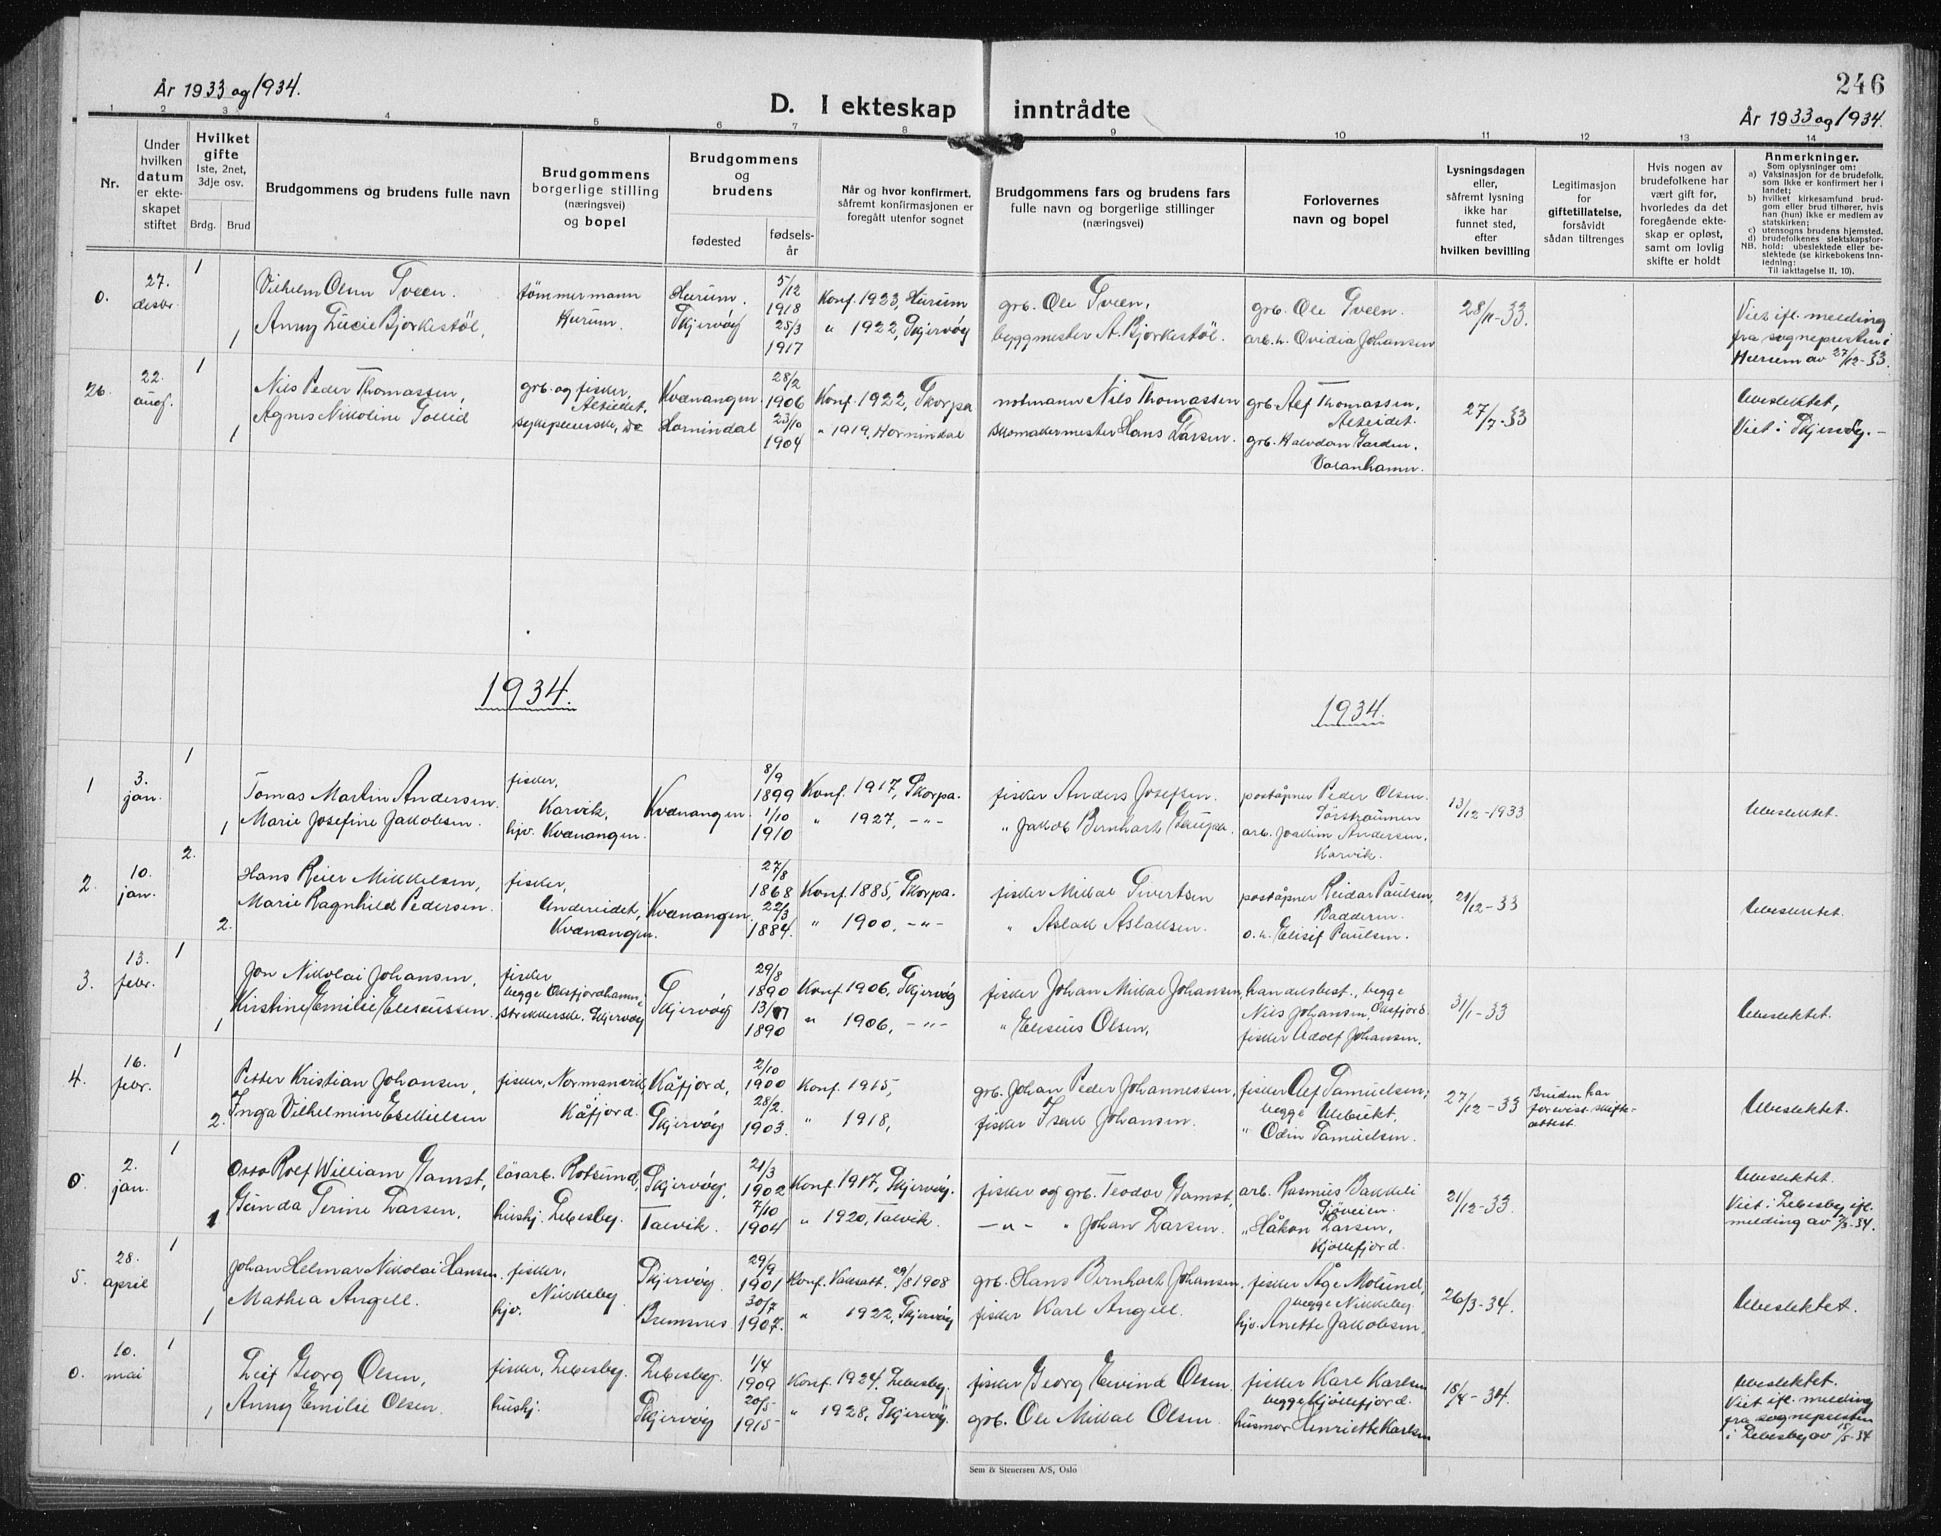 246
År 1933 og 1934.
D. I ekteskap inntrådte
År 1933 og 1934.
1 2 3 4 5 6 7 8 9 10 11 12 13 14
Nr.
Under hvilken datum er ekteskapet stiftet
Hvilket gifte
1ste, 2net, 3dje osv.
Brdg. Brud
Brudgommens og brudens fulle navn
Brudgommens borgerlige stilling (næringsvei) og bopel
Brudgommens og brudens
fødested
fødselsår
Når og hvor konfirmert, såfremt konfirmasjonen er foregått utenfor sognet
Brudgommens fars og brudens fars fulle navn og borgerlige stillinger (næringsvei)
Forlovernes navn og bopel
Lysningsdagen eller, såfremt lysning ikke har funnet sted, efter hvilken bevilling
Legitimasjon for giftetillatelse, forsåvidt sådan tiltrenges
Hvis nogen av brudefolkene har vært gift før, hvorledes da det foregående ekteskap er opløst, samt om lovlig skifte er holdt
Anmerkninger.
Som oplysninger om:
a) Vaksinasjon for de brudefolk, som ikke er konfirmert her i landet;
b) hvilket kirkesamfund brudgom eller brud tilhører, hvis han (hun) ikke er medlem av statskirken;
c) utensogns brudens hjemsted.
d) brudefolkenes slektskapsforhold: ubeslektede eller beslektede (se kirkebokens Innledning:
NB.
Til iakttagelse II, 10).
0. 27. desbr 1 Vilhelm Olsen Tveen. tømmermann Hurum. 5/12 1918 Konf. 1933, Hurum grb. Ole Tveen, grb. Ole Tveen. 28/11-33. Viet ifl. melding
1 Anny Lucie Bjørkestøl, Hurum. Skjervøy 25/3 1917 " 1922, Skjervøy byggmester A. Bjørkestøl. arb.h. Ovidia Johansen fra sognepresten i
Hurum av 27/12-33.
26. 22. aug. 1 Nils Peder Thomassen, grb. og fisker, Alteidet. Kvænangen 28/2 1906 Konf. 1922, Skorpa notmann Nils Thomassen grb. Alf Thomassen, Alteidet. 27/7-33 Ubeslektet,
1 Agnes Nikoline Tollid sykepleierske, do Hornindal 23/10 1904 " 1919, Hornindal skomakermester Hans Larsen. grb. Halvdan Garden, Viet i Skjervøy.-
1934.
1934.
1 3. jan. 1 Tomas Martin Andersen. fisker, Karvik, Kvænangen. 8/9 1899 Konf. 1917, Skorpa. fisker Anders Josefsen. poståpner Peder Olsen. Sørstraumen 13/12-1933 Ubeslektet.
1 Marie Josefine Jakobsen. hjv. Kvænangen. 1/10 1910 " 1927, -"- " Jakob Bernhart arb. Joakim Andersen, Karvik.
2. 10. jan. 2. Hans Reier Mikkelsen, fisker, Undereidet, Kvænangen. 27/8 1868 Konf. 1885, Skorpa. fisker Mikal Sivertsen poståpner Reidar Paulsen, Badderen. 21/12-33 Ubeslektet.
2. Marie Ragnhild Pedersen. Kvænangen. 22/3 1884. " 1900, -"- " Aslak Aslaksen. o.h. Elisif Paulsen.
3. 13. febr. 1 Jon Nikolai Johansen, fisker begge Oksfjordhamn, Skjervøy 29/8 1890 Konf. 1906, Skjervøy fisker Johan Mikal Johansen, handelsbest., begge 31/1-33 Ubeslektet.
1 Kristine Emilie Eliseussen. strikkerske. Skjervøy 13/11 1890 " 1906, -"- " Elisius Olsen, Nils Johansen, Oksfjord.
fisker Adolf Johansen.
4. 16. febr. 1 Petter Kristian Johansen, fisker, Normansvik, Kåfjord, 2/10 1900 Konf. 1915, grb. Johan Peder Johannessen, fisker Olef Samuelsen, 27/12-33 Bruden har Ubeslektet.
2. Inga Vilhelmine Esekielsen Kåfjord. Skjervøy 28/2. 1903. " 1918, fisker Isak Johansen. " Odin Samuelsen. skifteattest.
0 2. jan. 1 Otto Rolf William Gamst, løsarb. Rotsund, Skjervøy, 21/3 1902 Konf. 1917, Skjervøy. fisker og grb. Teodor Gamst, arb. Rasmus Bakkeli 21/12-33. Ubeslektet.
1 Gunda Serine Larsen, hushj. Lebesby. Talvik. 7/10 1904 " 1920, Talvik. -"- " Johan Larsen. " Håkon Larsen, Kjøllefjord. Viet i Lebesby ifl. melding av 2/3-34.
5. 28. april 1 Johan Helmar Nikolai Hansen. fisker, Nikkeby. Skjervøy. 29/9 1901 Konf. Vaksatt. 29/8 1908 grb. Hans Bernhart Johansen. fisker Åge Molund, begge Nikkeby. 26/3-34. Ubeslektet.
1 Mathea Angell. hjv. Bremsnes 30/7 1907. " 1922, Skjervøy fisker Karl Angell. hjv. Anette Jakobsen,
0. 10. mai 1 Leif Georg Olsen, fisker, Lebesby. Lebesby. 1/4 1909 Konf. 1924, Lebesby. fisker Georg Eivind Olsen. fisker Kare Karlsen begge Kjøllefjord. 18/4-34. Ubeslektet.
1 Anny Emilie Olsen. hushj. Skjervøy 20/5 1915 " 1928, Skjervøy. grb. Ole Mikal Olsen. husmor Henriette Karlsen Viet ifl. melding
fra sognepresten
i Lebesby av 18/5-34
Sem & Stenersen A/S, Oslo